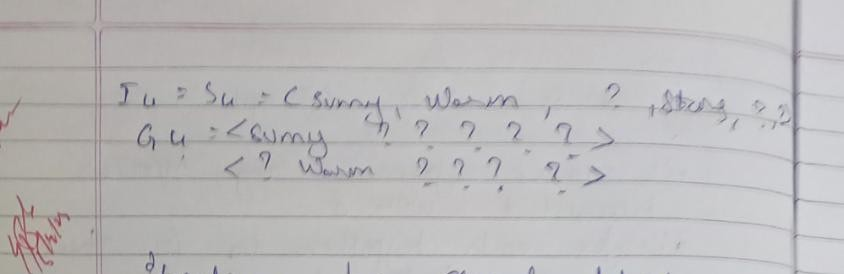 I4 = S4 = < sunny, Warm, ?, Strong, ?, ?
G4 = < sunny ? ? ? ? ? >
< ? Warm ? ? ? ? >